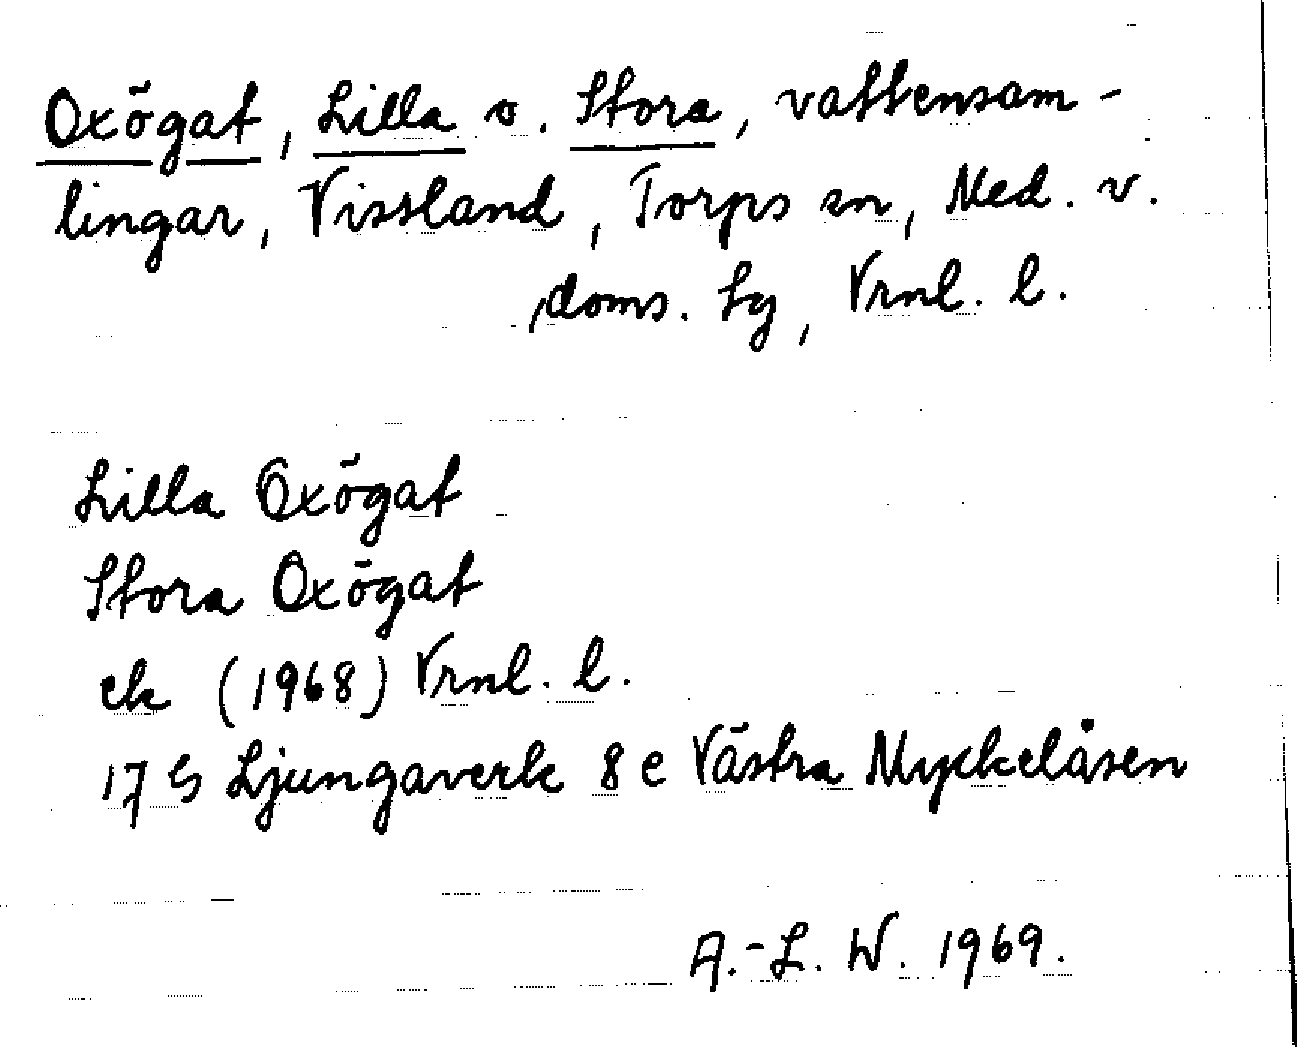 Oxögat, Lilla o. Stora, vattensam-
lingar, Vissland, Torps sn, Med. v.
doms. tg, Vrnl. l.
Lilla Oxögat
Stora Oxögat
ek (1968) Vrnl. l.
17 G Ljungaverk 8 e Västra Myckelåsen
A.-L. W. 1969.